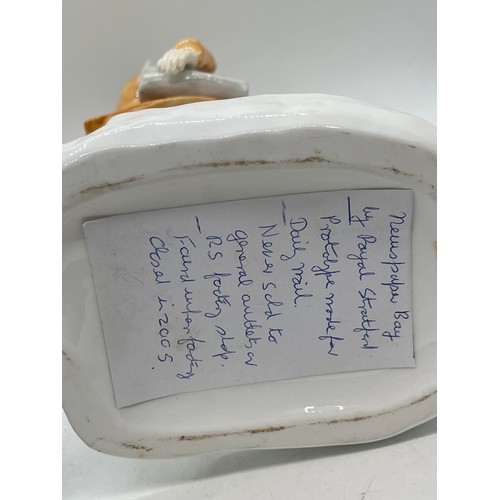 Newspaper Boy
by Royal Stratford
Prototype made for
Daily Mail.
— Never sold to
general outlets or
RS factory shop.
— Found when factory
closed in 2005.